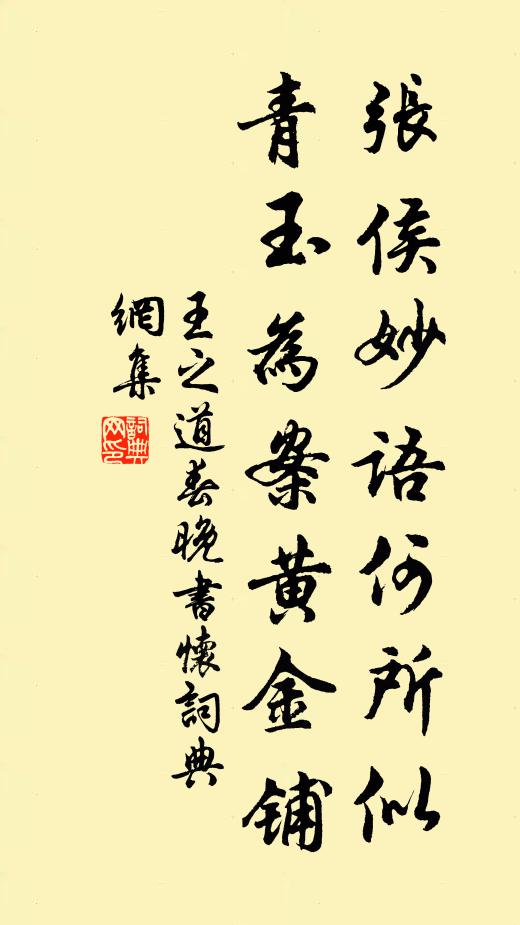 張侯妙語何所似
青玉為案黃金鋪
王之道春晚書懷詞典
網集
詞典
网印